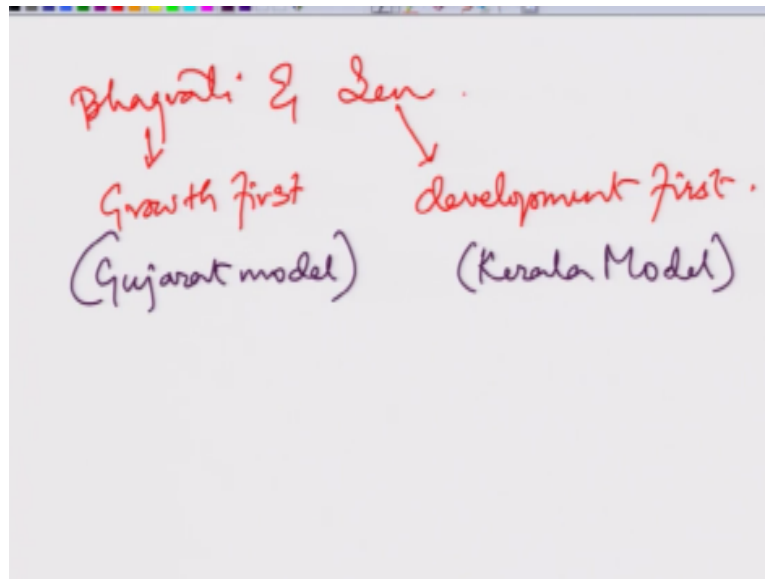 Bhagwati & Sen.
Growth first development first.
(Gujarat model) (Kerala Model)